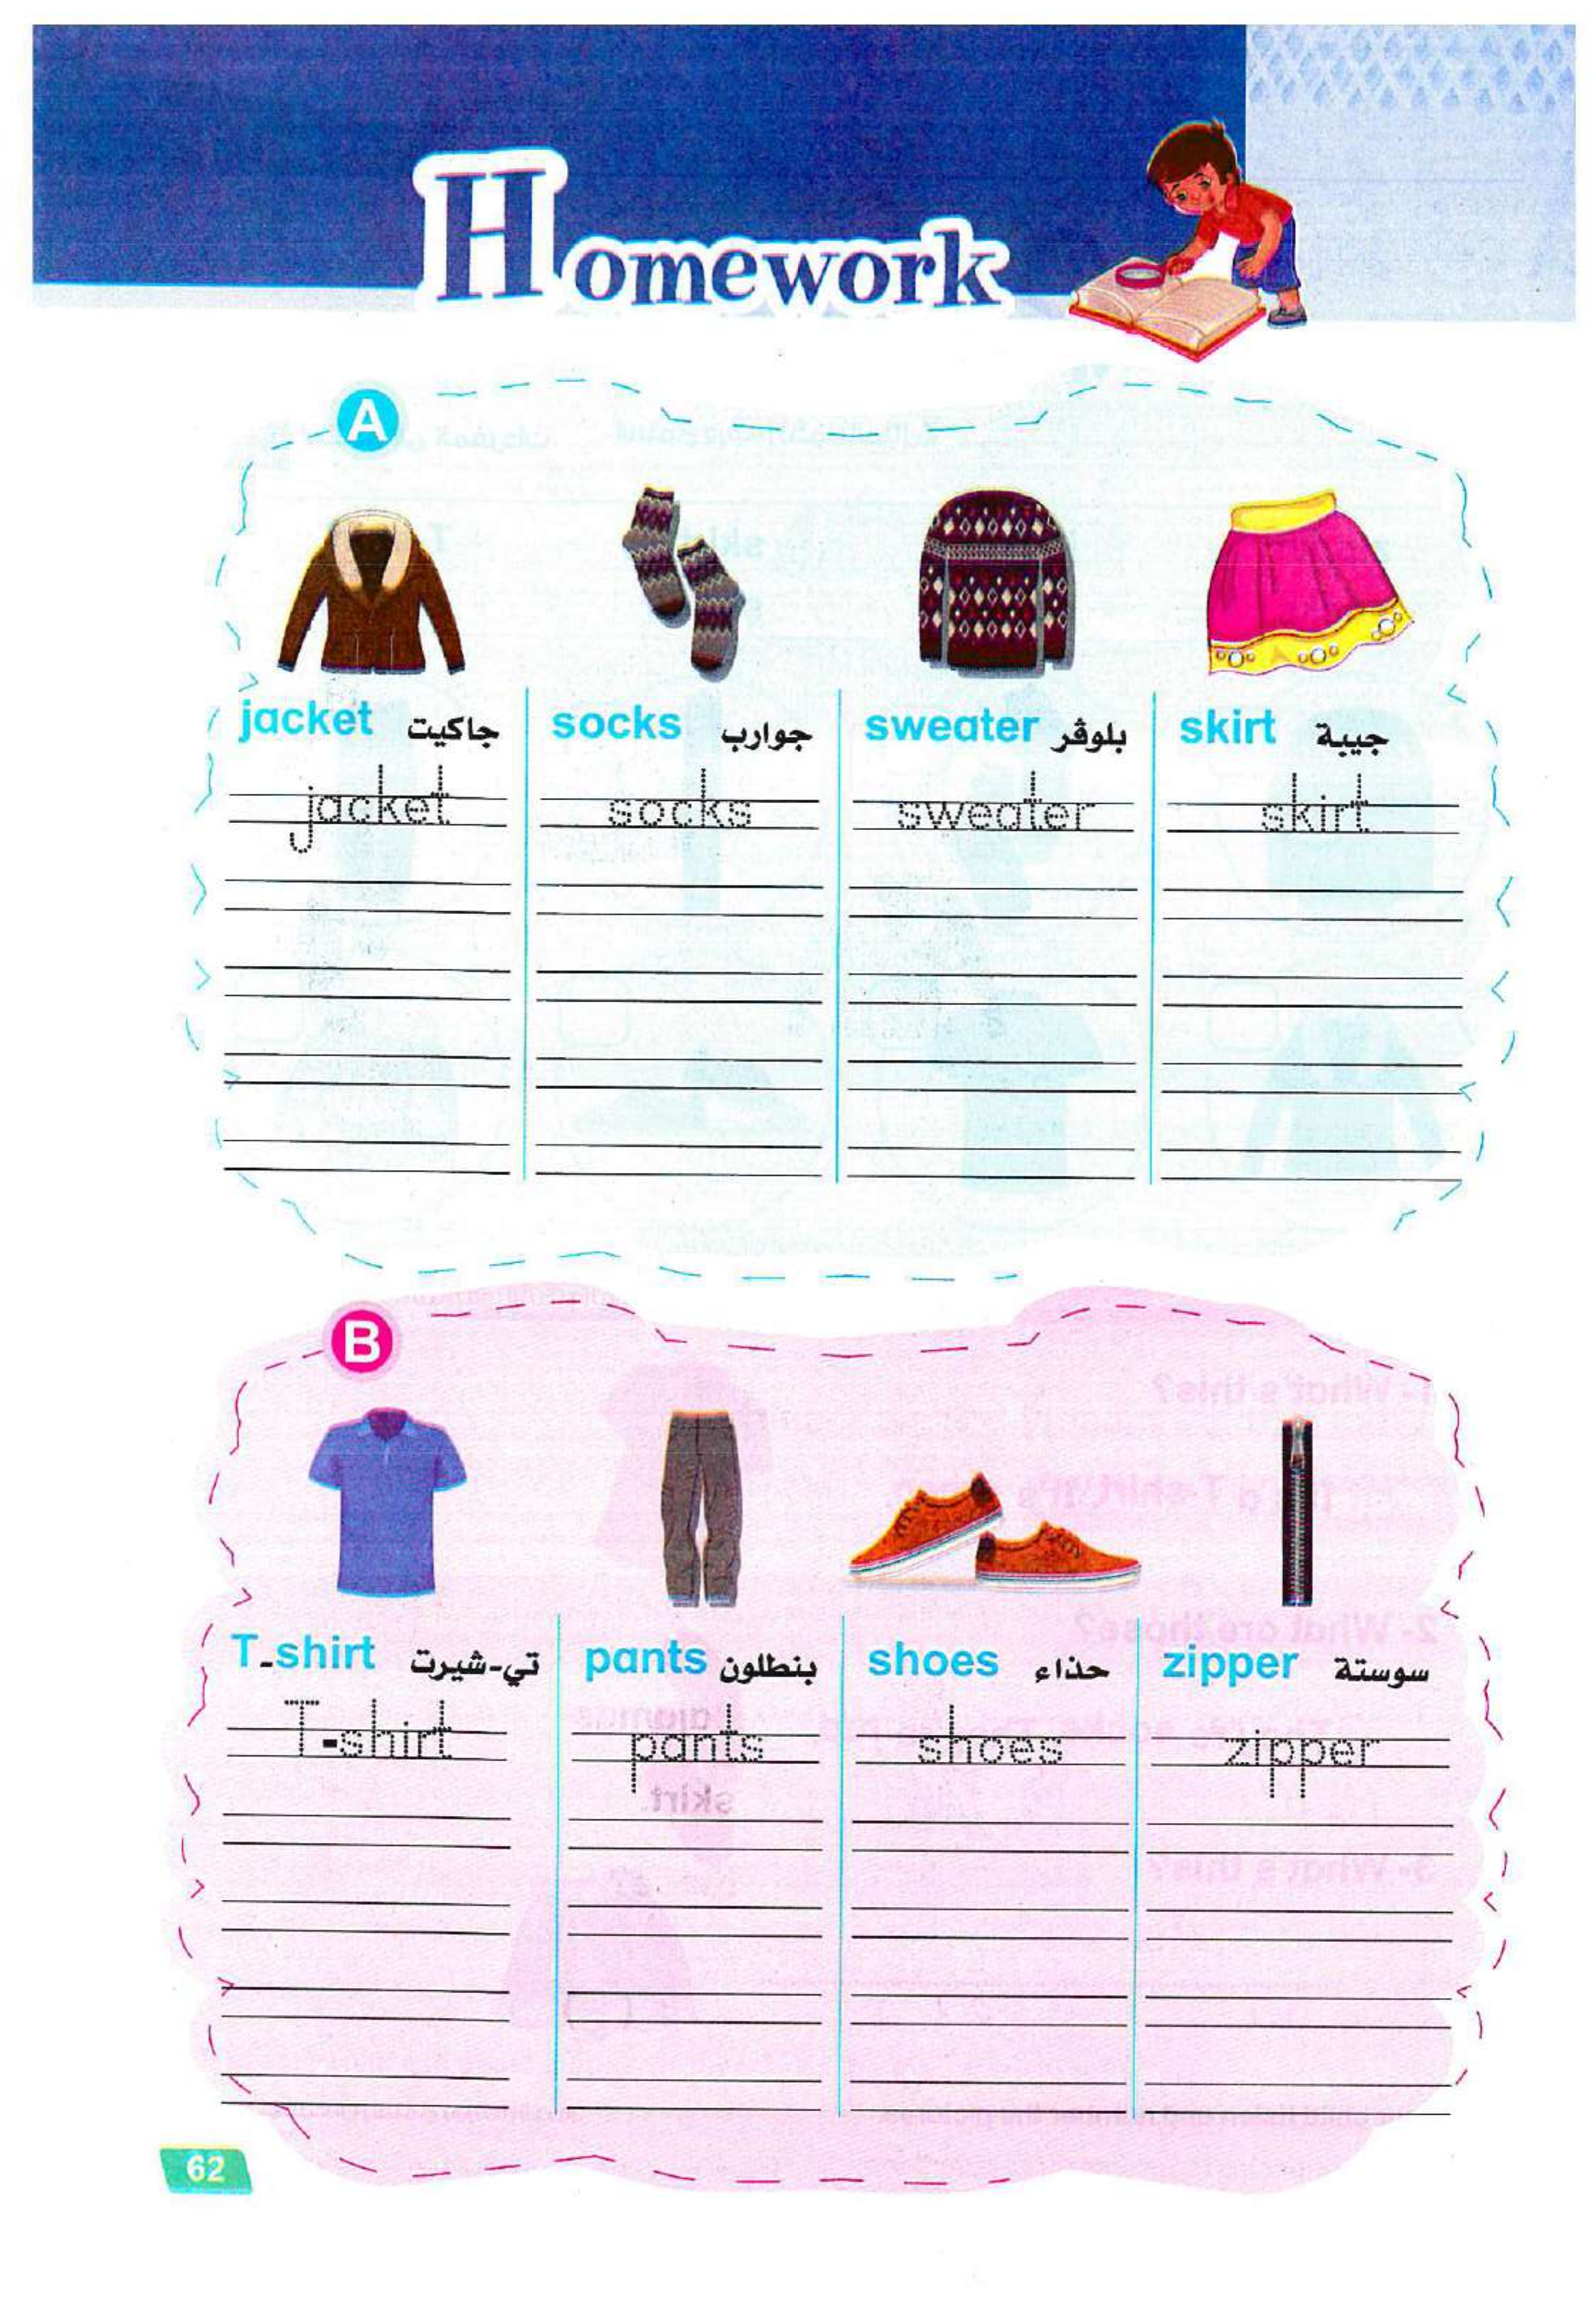 Homework
A
jacket جاكيت socks جوارب sweater بلوڤر skirt جيبة
jacket socks sweater skirt
B
T-shirt تي-شيرت pants بنطلون shoes حذاء zipper سوستة
T-shirt pants shoes zipper
62